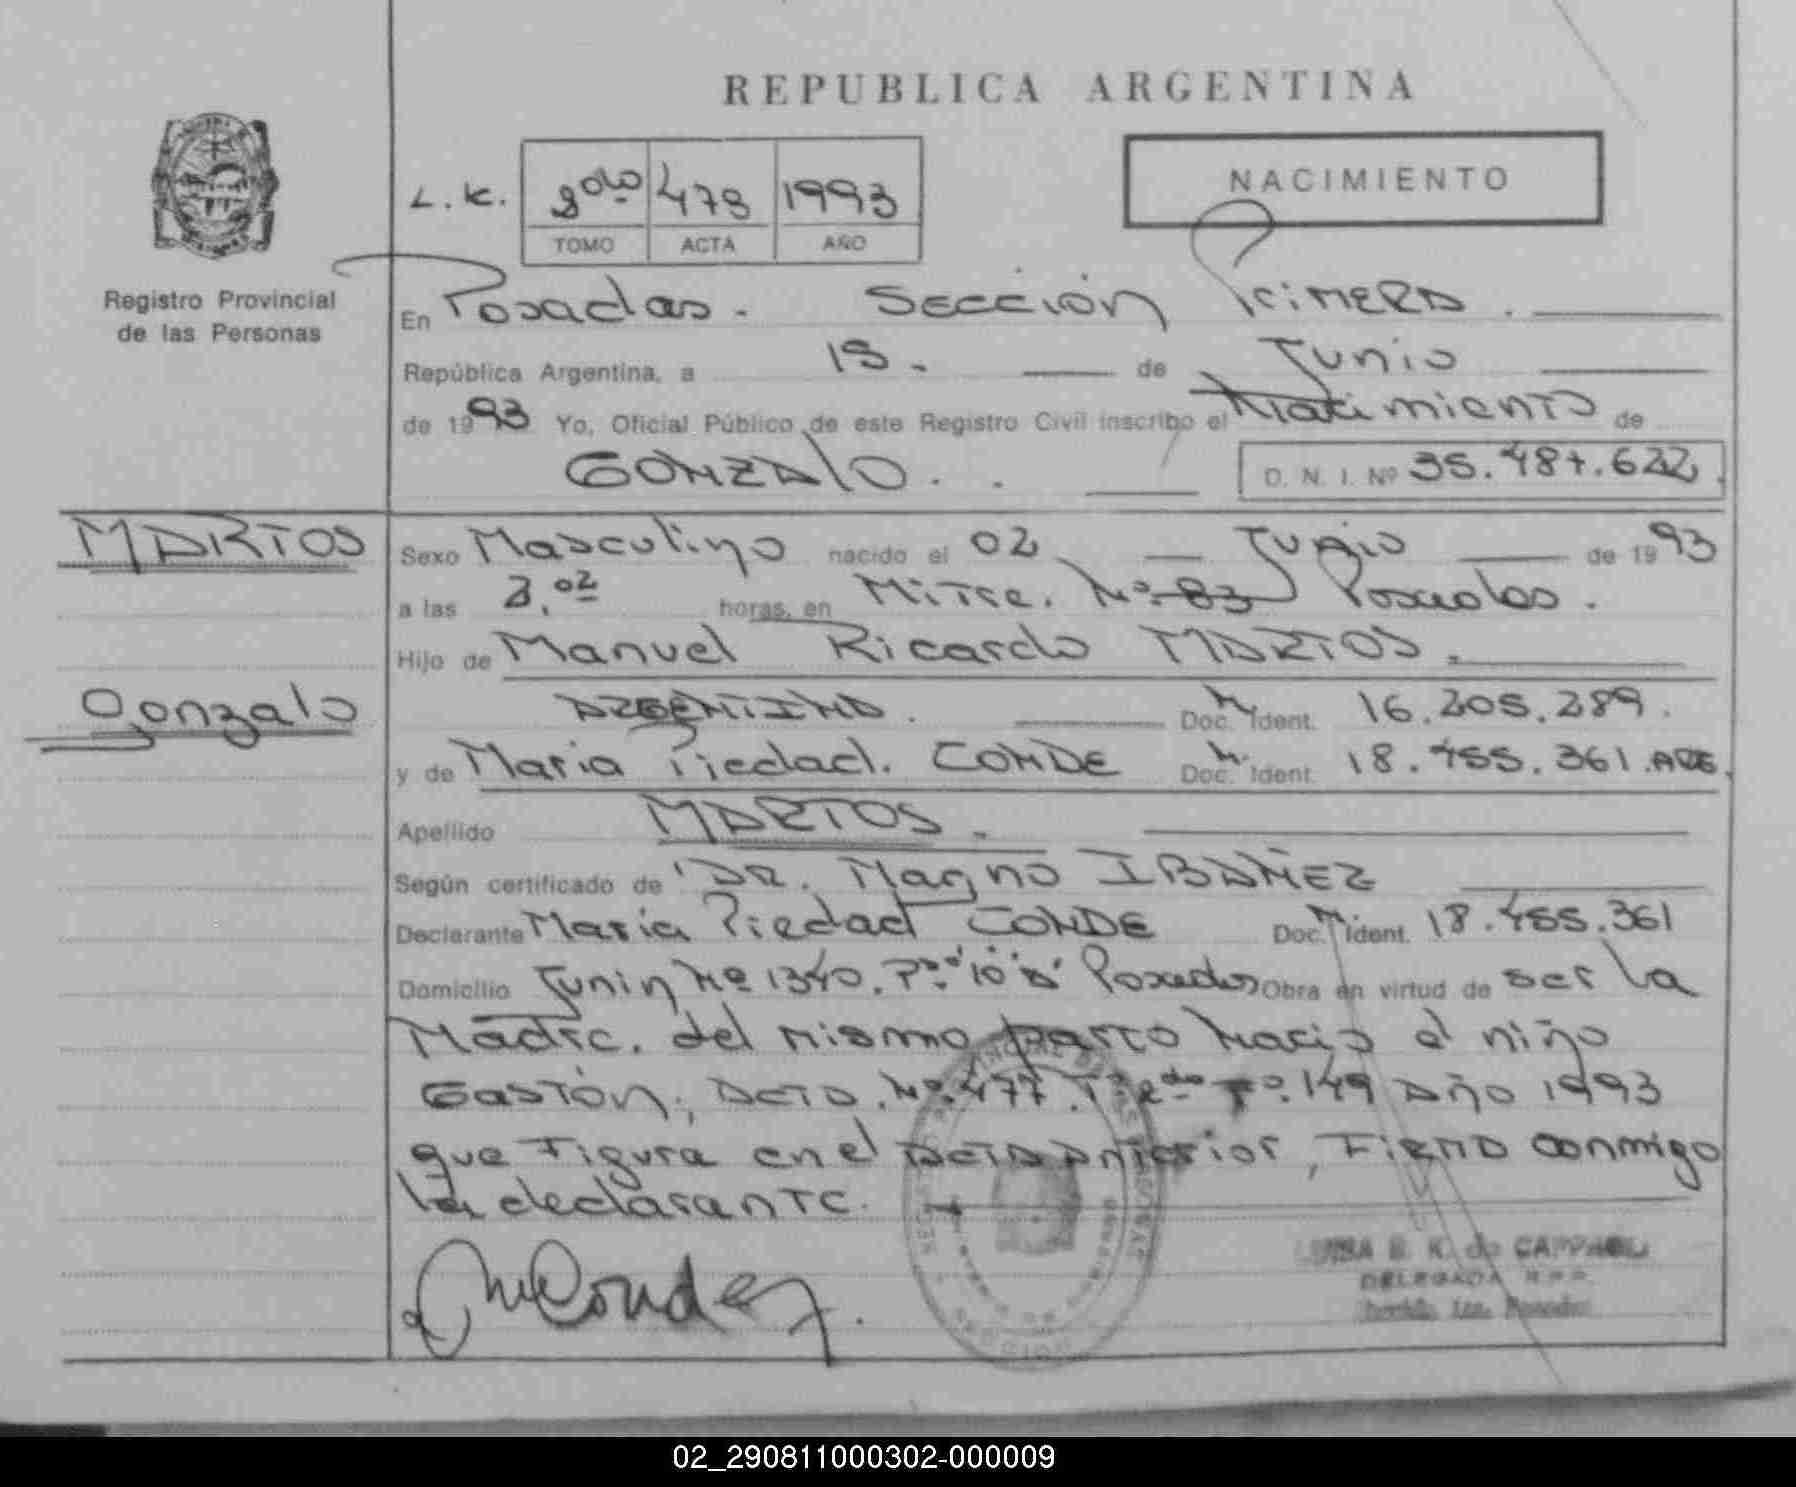 REPUBLICA ARGENTINA
NACIMIENTO
L. K.
478 1993
TOMO ACTA AÑO
Registro Provincial
de las Personas
En Posadas. Sección Primera.
República Argentina, a 15. de Junio
de 1993 Yo, Oficial Público de este Registro Civil inscribo el Nacimiento de
GONZALO. D. N. I. Nº 35.487.622.
MARTOS
Sexo Masculino nacido el 02 Junio de 1993
a las 3,02 horas, en Mitre. Nº 83 Posadas.
Hijo de Manuel Ricardo MARTOS.
Gonzalo
ARGENTINO. Doc. Ident. 16.205.289.
y de Maria Piedad. CONDE Doc. Ident. 18.455.361. ARG.
Apellido MARTOS.
Según certificado de DR. Magno IBAÑEZ
Declarante Maria Piedad CONDE Doc. Ident. 18.455.361
Domicilio Junin Nº 1340. Posadas Obra en virtud de ser la
Madre. del mismo parto Nació el niño
GASTÓN, ACTA. Nº 477. Tº 2do Fº. 149 Año 1993
que Figura en el ACTA Anterior, FIRMA conmigo
la declarante.
DELEGADA R.P.P.
02_290811000302-000009